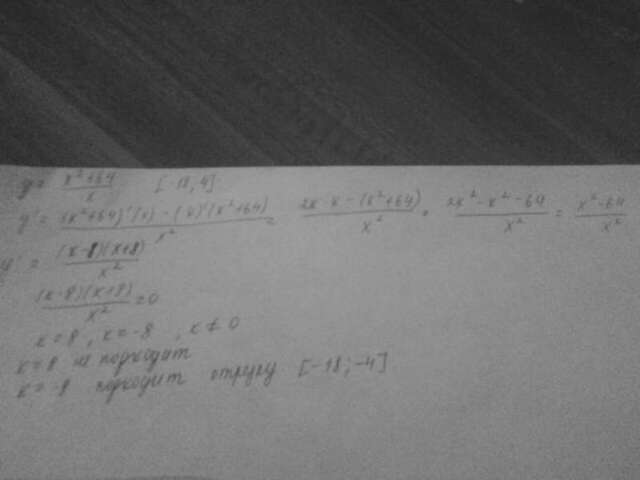 y = (x²+64)/x [-18, 4]
y' = ((x²+64)'(x) - (x)'(x²+64))/x² = (2x·x - (x²+64))/x² = (2x²-x²-64)/x² = (x²-64)/x²
y' = (x-8)(x+8)/x²
(x-8)(x+8)/x² = 0
x=8, x=-8, x≠0
x=8 не подходит
x=-8 подходит отрезку [-18;-4]